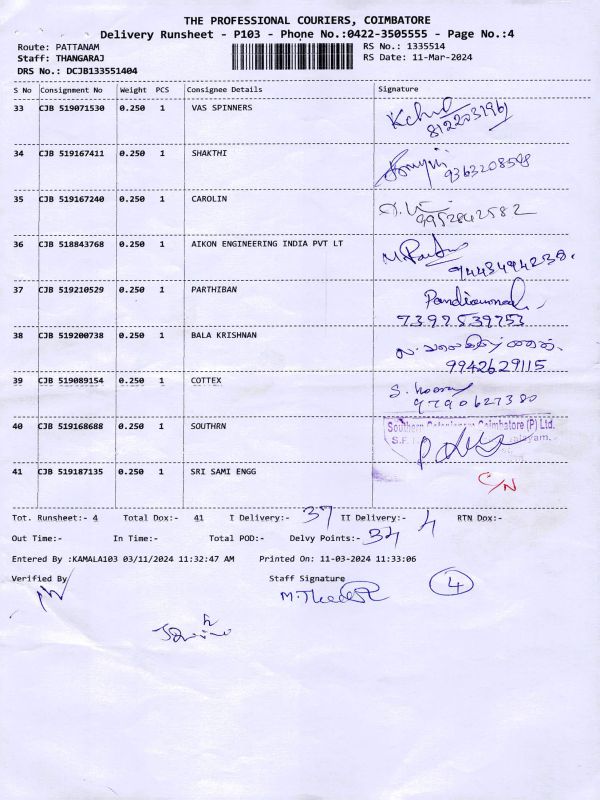 THE PROFESSIONAL COURIERS, COIMBATORE
Delivery Runsheet - P103 - Phone No.:0422-3505555 - Page No.:4
Route: PATTANAM RS No.: 1335514
Staff: THANGARAJ RS Date: 11-Mar-2024
DRS No.: DCJB133551404
S No Consignment No Weight PCS Consignee Details Signature
33 CJB 519071530 0.250 1 VAS SPINNERS
34 CJB 519167411 0.250 1 SHAKTHI
35 CJB 519167240 0.250 1 CAROLIN
9952842582
36 CJB 518843768 0.250 1 AIKON ENGINEERING INDIA PVT LT
9443494238.
37 CJB 519210529 0.250 1 PARTHIBAN
7397539753
38 CJB 519200738 0.250 1 BALA KRISHNAN
9942629115
39 CJB 519089154 0.250 1 COTTEX
9790627380
40 CJB 519168688 0.250 1 SOUTHRN
Southern Coimbatore (P) Ltd.
S.F.
41 CJB 519187135 0.250 1 SRI SAMI ENGG
C/N
Tot. Runsheet:- 4 Total Dox:- 41 I Delivery:- 37 II Delivery:- 4 RTN Dox:-
Out Time:- In Time:- Total POD:- Delvy Points:- 34
Entered By :KAMALA103 03/11/2024 11:32:47 AM Printed On: 11-03-2024 11:33:06
Verified By Staff Signature 4